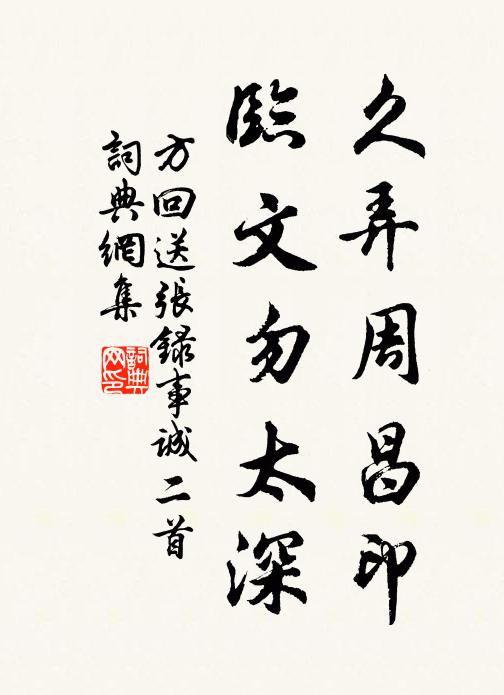 久弄周昌印
臨文勿太深
方回送張録事誠二首
詞典網集
詞典
网印